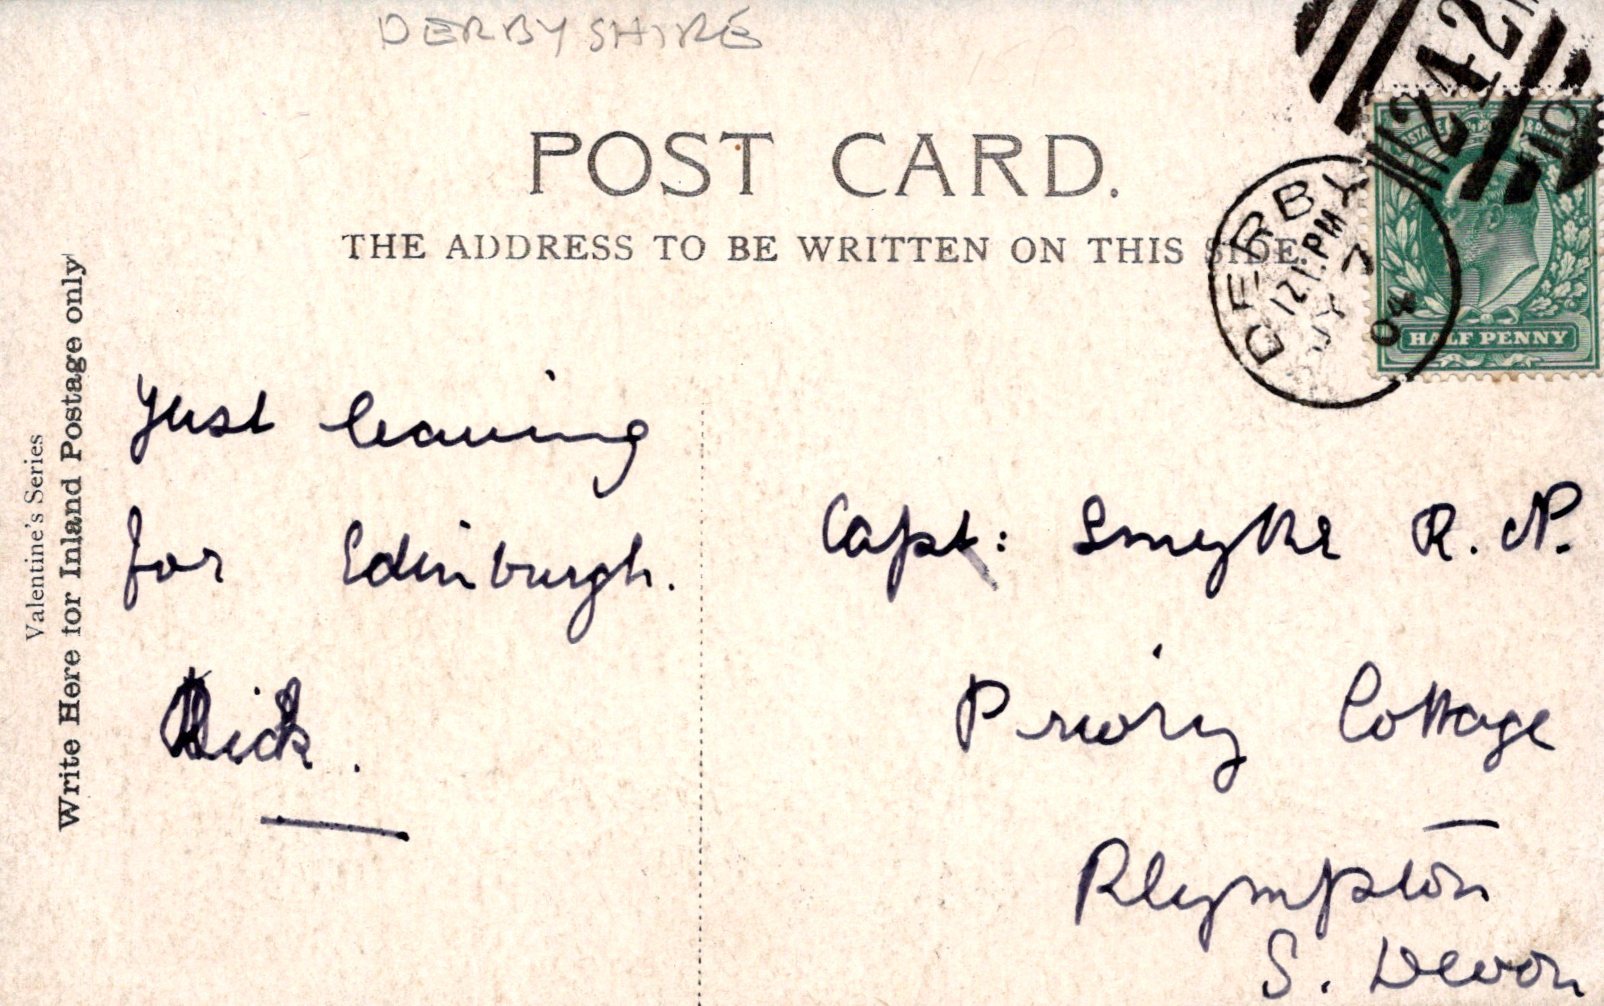 DERBYSHIRE
POST CARD.
THE ADDRESS TO BE WRITTEN ON THIS SIDE.
242
DERBY
12 1. PM
JY 7
04
HALF PENNY
Valentine's Series
Write Here for Inland Postage only
Just leaving
for Edinburgh.
Dick.
Capt: Smythe R. N.
Priory Cottage
Plympton
S. Devon